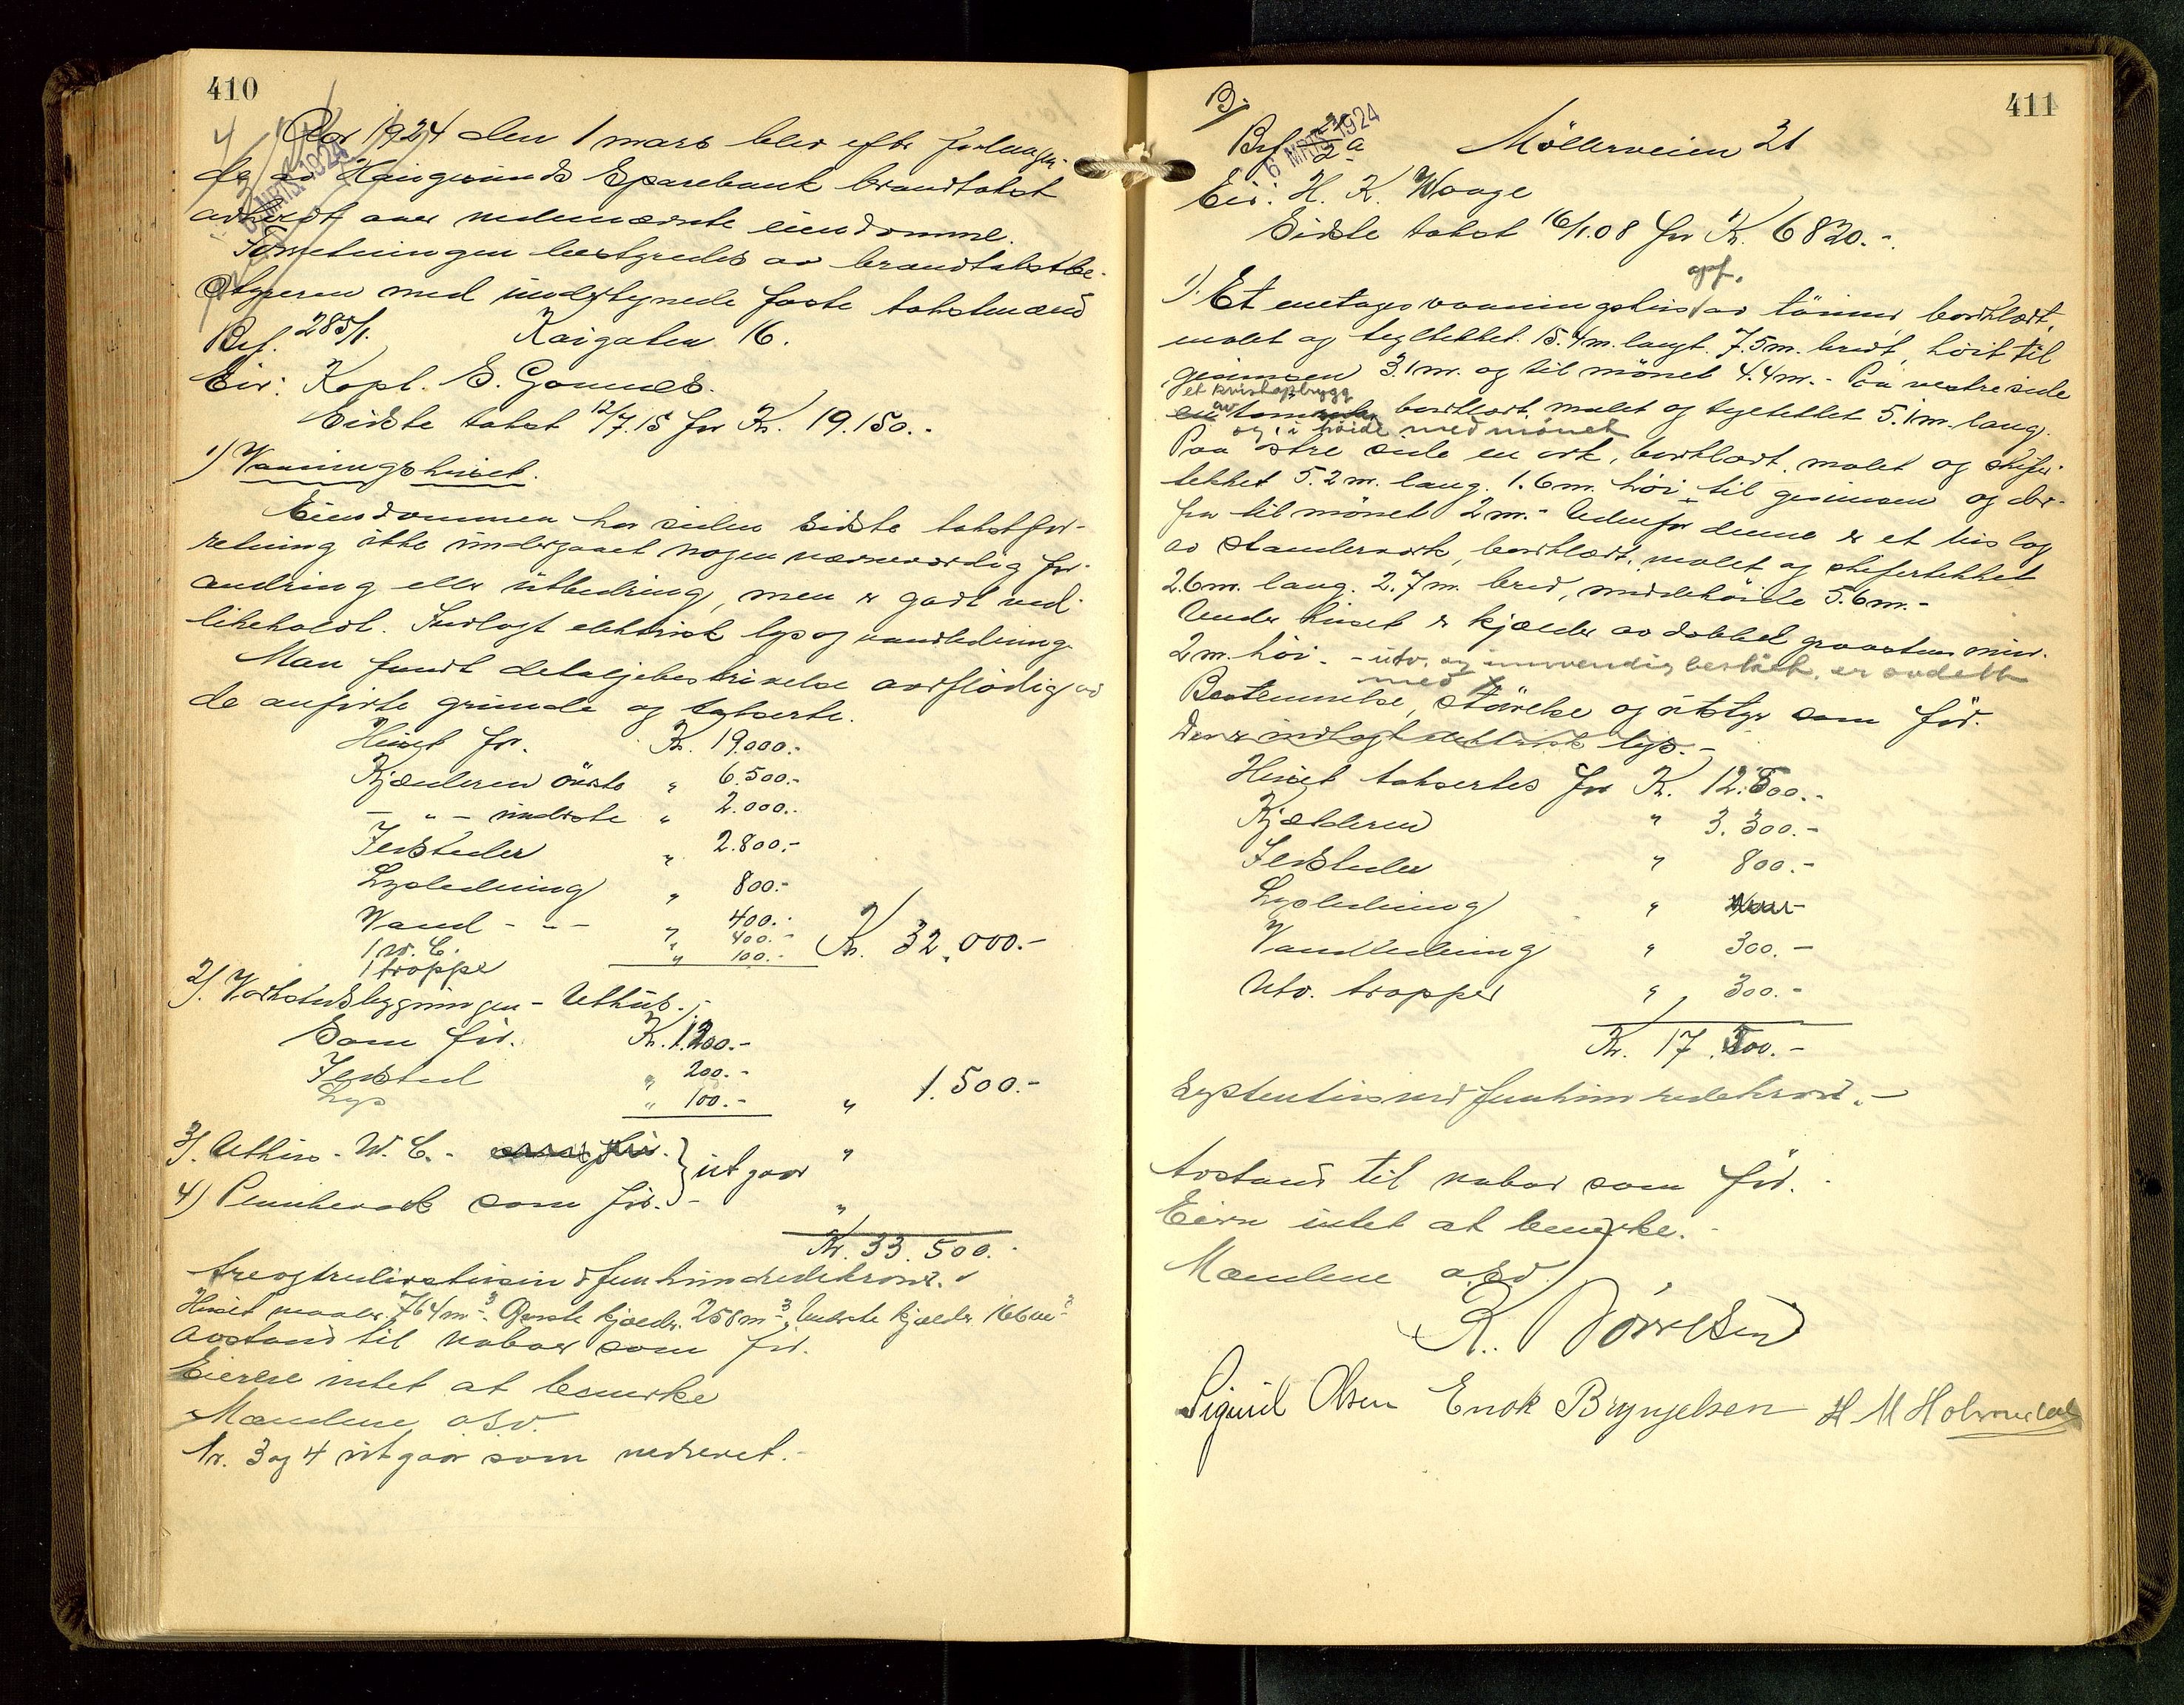 410
Aar 1924 den 1 mars blev efter forlangen-
de av Haugesunds Sparebank brandtakst
avholdt over nedennævnte eiendomme.
6 MRTS. 1924
Forretningen bestyredes av brandtakstbe-
styreren med undertegnede faste takstmænd
Brf. 285/1. Kaigaten 16.
Eier: Kapt. S. Gamnes.
Sidste takst 12/7.15 for Kr. 19.150.-
1) Vaaningshuset.
Eiendommen har siden sidste takstfor-
retning ikke undergaaet nogen nævneværdig for-
andring eller utbedring, men er godt ved-
likeholdt. Indlagt elektrisk lys og vandledning.
Man fandt detaljebeskrivelse overflødig av
de anførte grunde og takserte.
Huset for. Kr. 19.000.-
Kjælderen øverste " 6.500.-
- " - underste " 2.000.-
Ildsteder " 2.800.-
Lysledning " 800.-
Vand - " - " 400.-
1 W.C. " 400.-
1 trappe " 100.- Kr. 32.000.-
2). Verkstedsbygningen - Uthus.-
Som før. Kr. 1.200.-
Ildsted " 200.-
Lys " 100.- " 1.500.-
3). Uthus - W.C. - som før. } utgaar "
4) Plankeverk som før. - "
Kr. 33.500.-
treogtredivetusin og femhundrede kroner.
Huset maaler 764 m³. Øverste kjælder 258 m³, underste kjælder 166 m³
Avstand til naboer som før.
Eieren intet at bemerke
Mændene o.s.v.
Nr. 3 og 4 utgaar som nedrevet.-
411
B/
Brf 2a 6 MRTS 1924 Möllerveien 21
Eier: H. K. Waage
Sidste takst 16/1.08 for Kr. 6820.-
opf.
1). Et enetages vaaningshus av tømmer, bordklædt,
malet og tegltekket. 15.4 m. langt. 7.5 m. bredt, høit til
gesimsen 3.1 m. og til mønet 4.4 m.- Paa vestre side
et kvistopbygg
av bordklædt, malet og tegltekket 5.1 m. lang.
og i høide med mønet
Paa østre side en ark, bordklædt, malet og skifer-
tekket 5.2 m. lang. 1.6 m. høi til gesimsen og der-
fra til mønet 2 m.- Utenfor denne er et bislag
av standerverk, bordklædt, malet og skifertekket
2.6 m. lang. 2.7 m. bred, middelhøide 5.6 m.-
Under huset er kjælder av dobbel graastens mur.
2 m. høi. - utv. og innvendig berikt, er avdelt
med
Bestemmelse, størrelse og utstyr som før.
Der er indlagt elektrisk lys.-
Huset taksertes for Kr. 12.800.-
Kjælderen " 3.300.-
Ildsteder " 800.-
Lysledning "
Vandledning " 300.-
Utv. trapper " 300.-
Kr. 17.500.-
Syttentusind femhundredekroner.-
Avstand til naboer som før.-
Eieren intet at bemerke.-
Mændene o.s.v.
R. Tørresen
Sigurd Olsen Enok Brynjelsen H M Holmedal